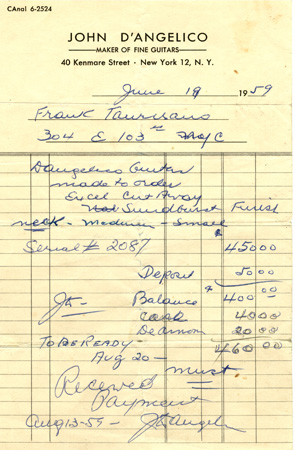 CAnal 6-2524
JOHN D'ANGELICO
MAKER OF FINE GUITARS
40 Kenmare Street · New York 12, N. Y.
June 19 1959
Frank
304 E 103rd NYC
Dangelico Guitar
made to order
Excel Cut Away
Sundburst Finish
neck - Medium - Small
Serial # 2087 $ 45000
Deposit 50.00
JD - Balance $ 400.00
case 4000
Dearmon 20.00
TO BE READY - 460.00
Aug 20 - must
Received
Payment
Aug 13-59 - JD Angel